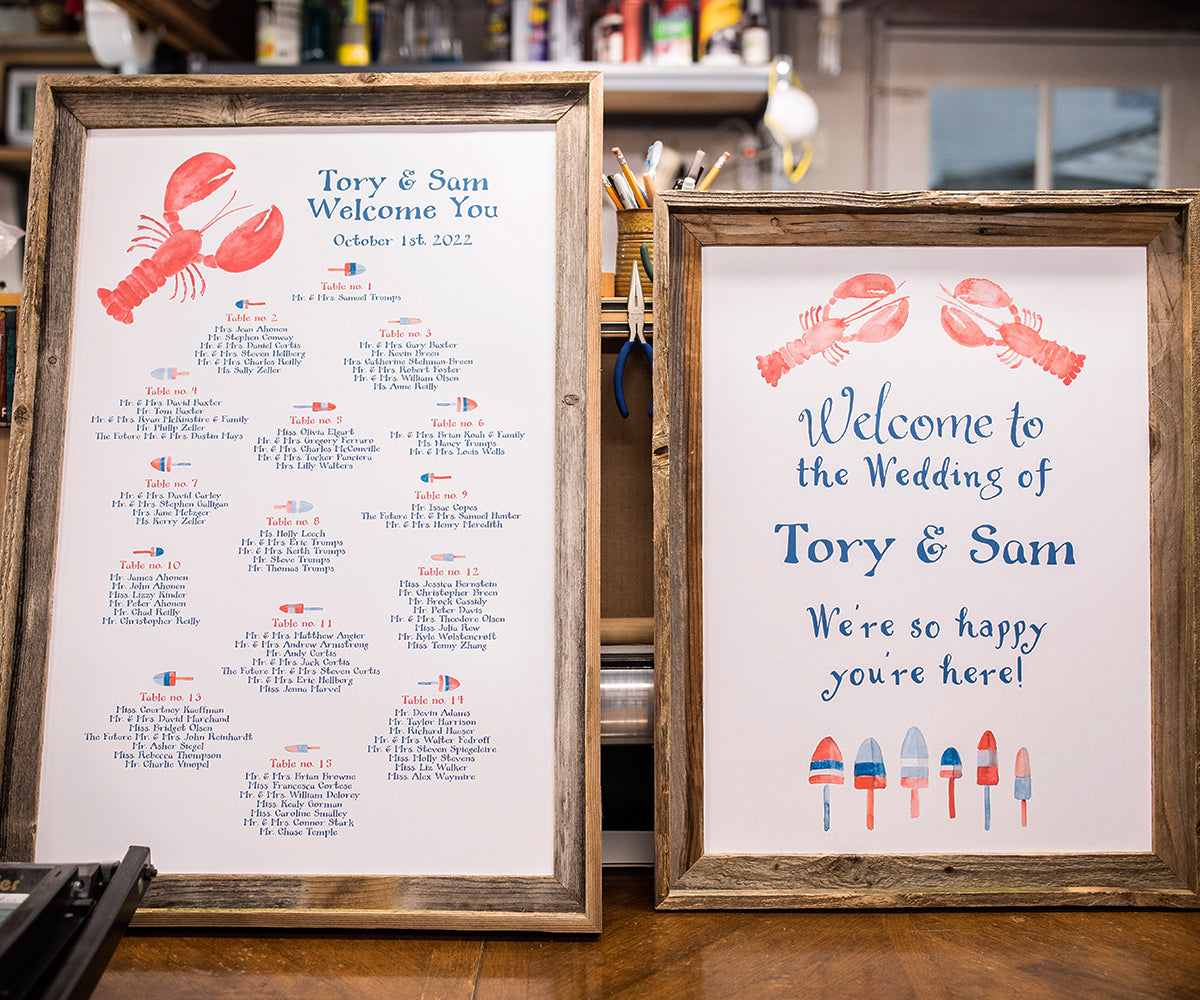 Tory & Sam
Welcome You
October 1st, 2022
Table no. 1
Mr. & Mrs. Samuel Trumps
Table no. 2
Mrs. Jean Ahonen
Mr. Stephen Conway
Mr. & Mrs. Daniel Curtis
Mr. & Mrs. Steven Hellberg
Mr. & Mrs. Charles Reilly
Ms. Sally Zeller
Table no. 3
Mr. & Mrs. Gary Baxter
Mr. Kevin Breen
Mrs. Catherine Stehman-Breen
Mr. & Mrs. Robert Foster
Mr. & Mrs. William Olsen
Ms. Anne Reilly
Table no. 4
Mr. & Mrs. David Baxter
Mr. Tom Baxter
Mr. & Mrs. Ryan McKinstire & Family
Mr. Philip Zeller
The Future Mr. & Mrs. Dustin Mays
Table no. 5
Miss. Olivia Elgart
Mr. & Mrs. Gregory Ferraro
Mr. & Mrs. Charles McConville
Mr. & Mrs. Tucker Panciera
Mrs. Lilly Walters
Table no. 6
Mr. & Mrs. Brian Koah & Family
Ms. Nancy Trumps
Mr. & Mrs. Louis Wells
Table no. 7
Mr. & Mrs. David Carley
Mr. & Mrs. Stephen Galligan
Mrs. Jane Metzger
Ms. Kerry Zeller
Table no. 8
Ms. Holly Leech
Mr. & Mrs. Eric Trumps
Mr. & Mrs. Keith Trumps
Mr. Steve Trumps
Mr. Thomas Trumps
Table no. 9
Mr. Issac Copes
The Future Mr. & Mrs. Samuel Hunter
Mr. & Mrs. Henry Meredith
Table no. 10
Mr. James Ahonen
Mr. John Ahonen
Miss. Lizzy Kinder
Mr. Peter Ahonen
Mr. Chad Reilly
Mr. Christopher Reilly
Table no. 11
Mr. & Mrs. Matthew Angier
Mr. & Mrs. Andrew Armstrong
Mr. Andy Curtis
Mr. & Mrs. Jack Curtis
The Future Mr. & Mrs. Steven Curtis
Mr. & Mrs. Eric Hellberg
Miss. Jenna Marvel
Table no. 12
Miss. Jessica Bernstein
Mr. Christopher Breen
Mr. Brock Cassidy
Mr. Peter Davis
Mr. & Mrs. Theodore Olsen
Miss. Julia Rew
Mr. Kyle Wolstencroft
Miss. Tenny Zhang
Table no. 13
Miss. Courtney Kauffman
Mr. & Mrs. David Marchand
Miss. Bridget Olsen
The Future Mr. & Mrs. John Reinhardt
Mr. Asher Siegel
Miss. Rebecca Thompson
Mr. Charlie Vinopel
Table no. 14
Mr. Devin Adams
Mr. Taylor Harrison
Mr. Richard Hauser
Mr. & Mrs. Walter Fedroff
Mr. & Mrs. Steven Spiegeleire
Miss. Molly Stevens
Miss. Liz Walker
Miss. Alex Waymire
Table no. 15
Mr. & Mrs. Brian Browne
Miss. Francesca Cortese
Mr. & Mrs. William Delorey
Miss. Kealy Gorman
Miss. Caroline Smalley
Mr. & Mrs. Connor Stark
Mr. Chase Temple
Welcome to
the Wedding of
Tory & Sam
We're so happy
you're here!